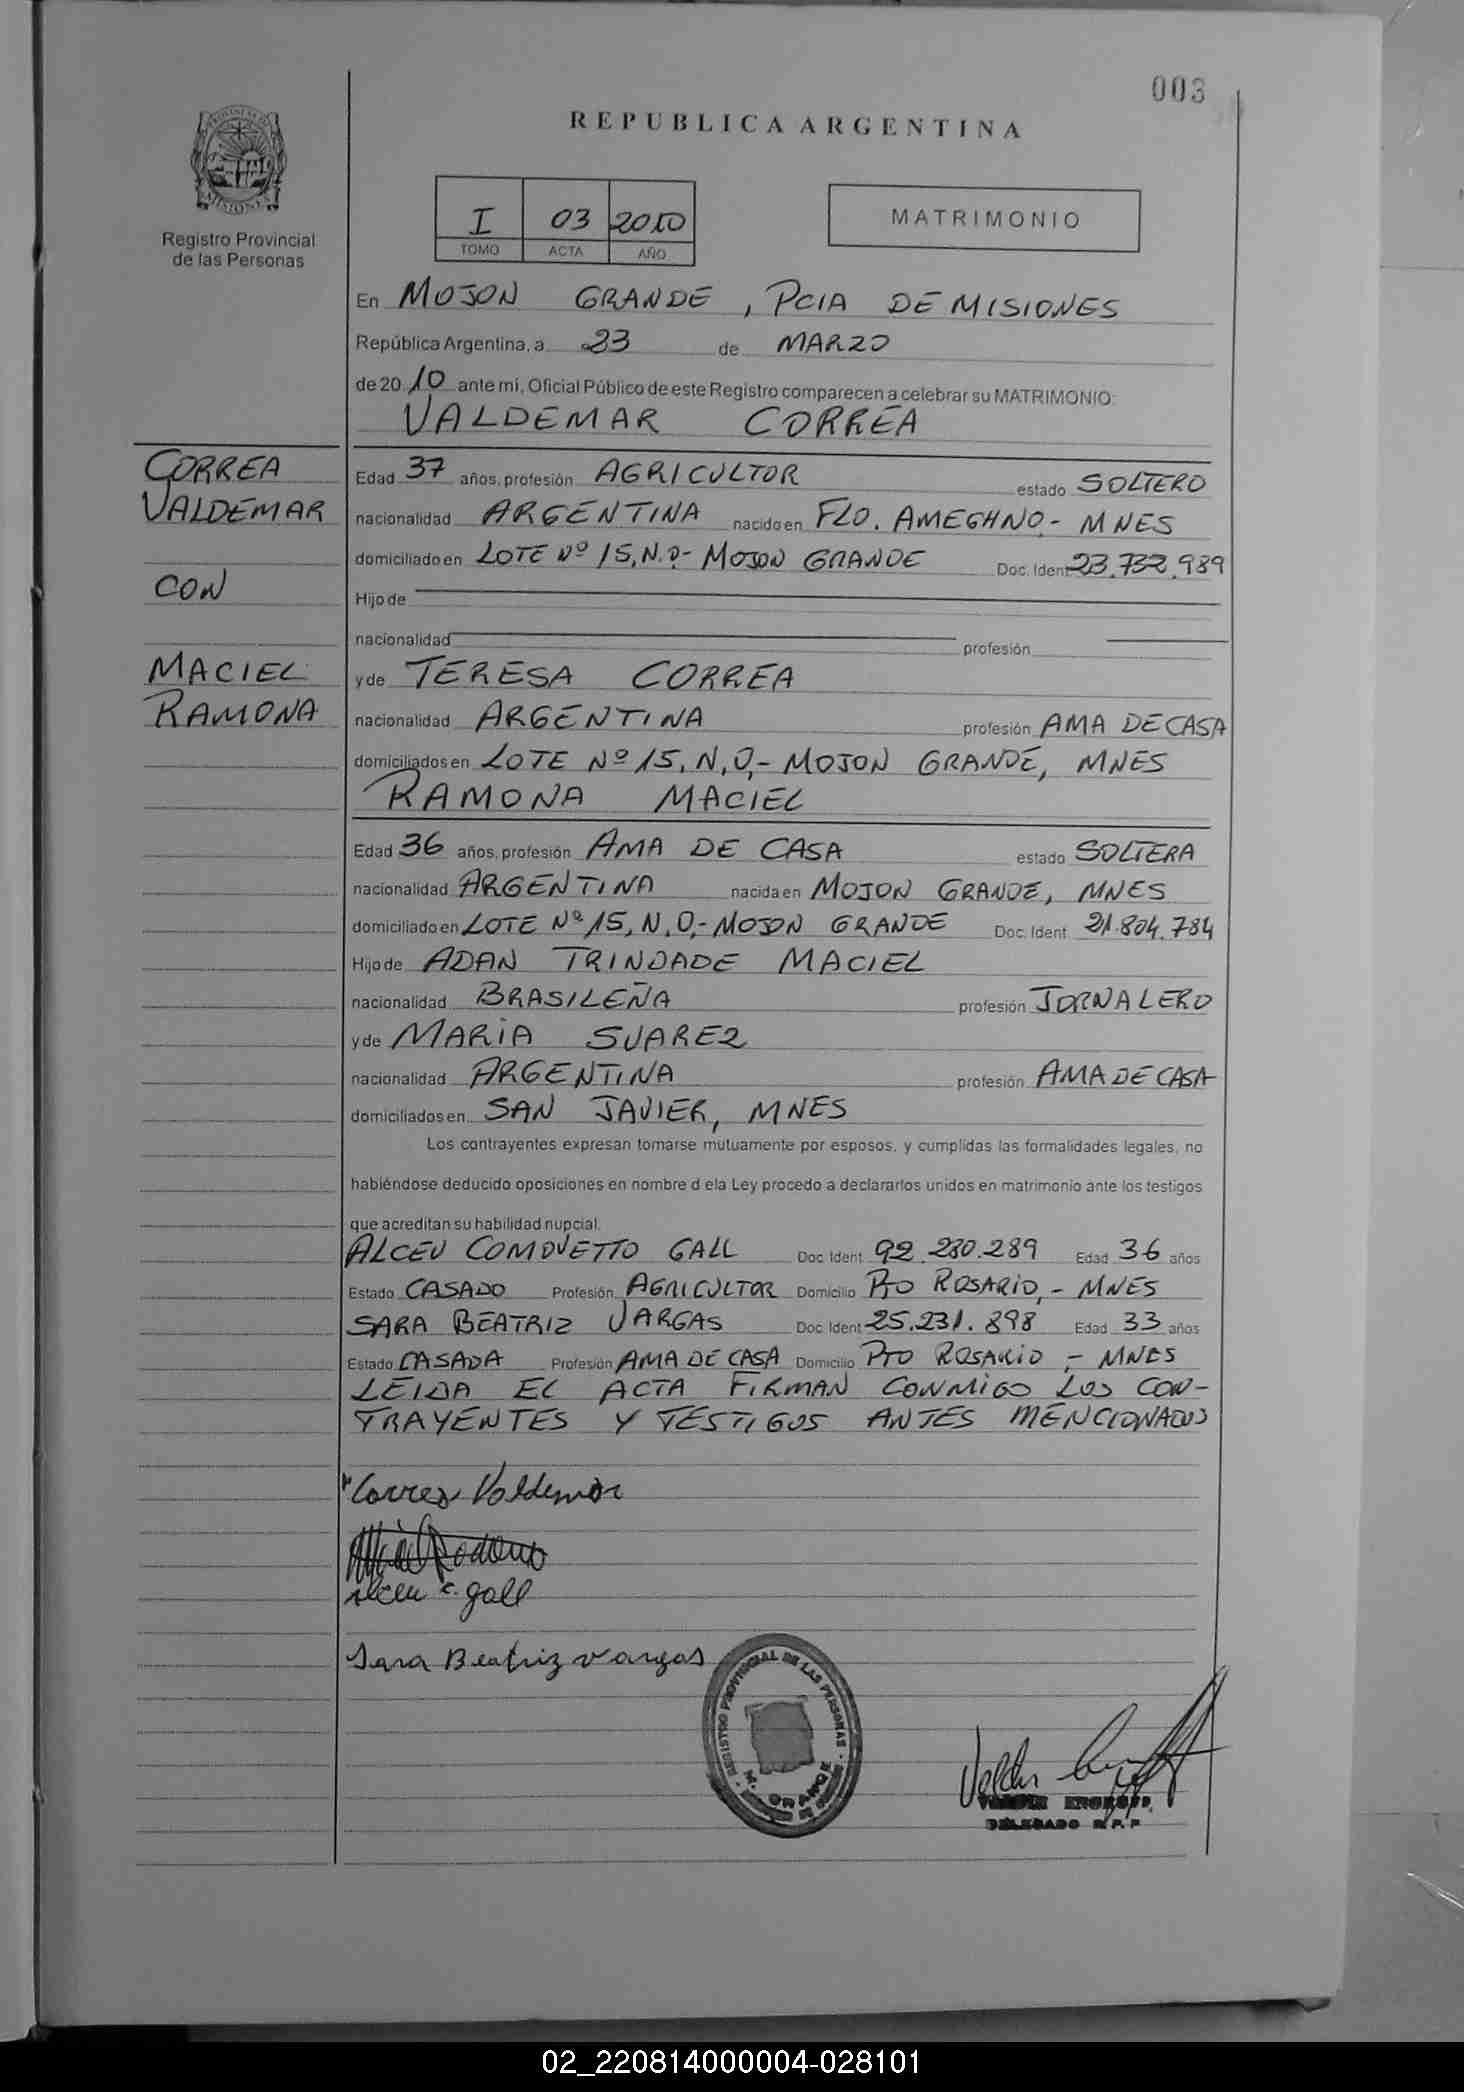 003
REPUBLICA ARGENTINA
PROVINCIA DE
MISIONES
Registro Provincial
de las Personas
I 03 2010
TOMO ACTA AÑO
MATRIMONIO
En MOJON GRANDE, PCIA DE MISIONES
República Argentina, a 23 de MARZO
de 20 10 ante mi, Oficial Público de este Registro comparecen a celebrar su MATRIMONIO:
VALDEMAR CORREA
CORREA
VALDEMAR
CON
MACIEL
RAMONA
Edad 37 años, profesión AGRICULTOR estado SOLTERO
nacionalidad ARGENTINA nacido en FLO. AMEGHNO- MNES
domiciliado en LOTE Nº 15, N.O- MOJON GRANDE Doc. Ident 23.732.989
Hijo de
nacionalidad profesión
y de TERESA CORREA
nacionalidad ARGENTINA profesión AMA DE CASA
domiciliados en LOTE Nº 15, N,O,- MOJON GRANDE, MNES
RAMONA MACIEL
Edad 36 años, profesión AMA DE CASA estado SOLTERA
nacionalidad ARGENTINA nacida en MOJON GRANDE, MNES
domiciliado en LOTE Nº 15, N,O,- MOJON GRANDE Doc. Ident 21.804.784
Hijo de ADAN TRINDADE MACIEL
nacionalidad BRASILEÑA profesión JORNALERO
y de MARIA SUAREZ
nacionalidad ARGENTINA profesión AMA DE CASA
domiciliados en SAN JAVIER, MNES
Los contrayentes expresan tomarse mutuamente por esposos, y cumplidas las formalidades legales, no
habiéndose deducido oposiciones en nombre d ela Ley procedo a declararlos unidos en matrimonio ante los testigos
que acreditan su habilidad nupcial.
ALCEU COMOVETTO GALL Doc. Ident 92.230.289 Edad 36 años
Estado CASADO Profesión AGRICULTOR Domicilio PTO ROSARIO,- MNES
SARA BEATRIZ VARGAS Doc. Ident 25.231.898 Edad 33 años
Estado CASADA Profesión AMA DE CASA Domicilio PTO ROSARIO - MNES
LEIDA EL ACTA FIRMAN CONMIGO LOS CON-
TRAYENTES Y TESTIGOS ANTES MENCIONADOS
Correa Valdemar
alceu c. gall
Sara Beatriz Vargas
REGISTRO PROVINCIAL DE LAS PERSONAS
M. GRANDE
DELEGADO R.P.P
02_220814000004-028101